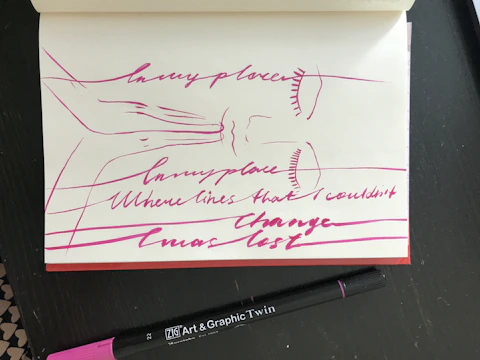 In my place
In my place
Where lines that I couldn't
Change
I was lost
22 ZIG Art & Graphic Twin